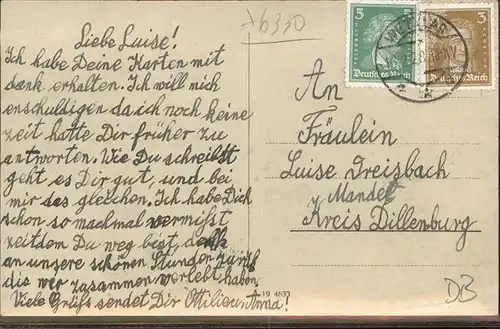 x6330
Liebe Luise!
Ich habe Deine Karten mit
dank erhalten. Ich will mich
enschuldigen da ich noch keine
zeit hatte Dir früher zu
antworten. Wie Du schreibst
geht es Dir gut, und bei
mir des gleichen. Ich habe Dich
schon so machmal vermisst
zeitdem Du weg bist, denk
an unsere schönen Stunden zurük
die wir zusammen verlebt haben
Viele Grüße sendet Dir Ottilie u. Anna!
5
Deutsches Reich
3
Deutsches Reich
An
Fräulein
Luise Dreisbach
Mandeln
Kreis Dillenburg
A 19 4635
DB